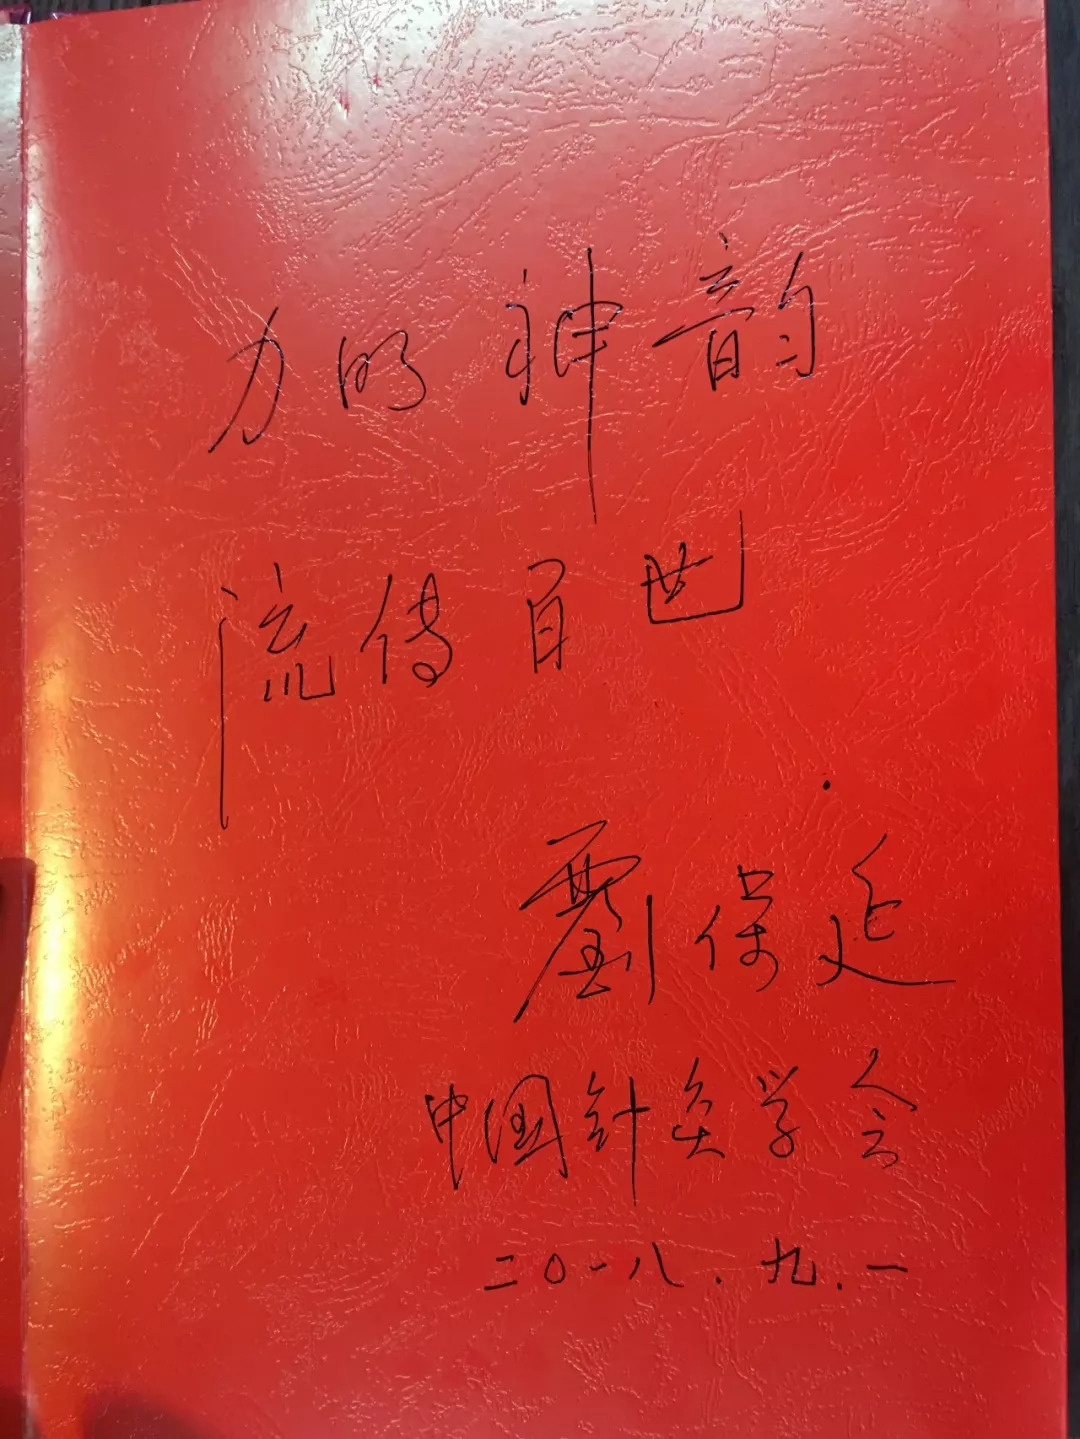 力明神韵
流传百世
劉保延
中国针灸学会
二〇一八.九.一